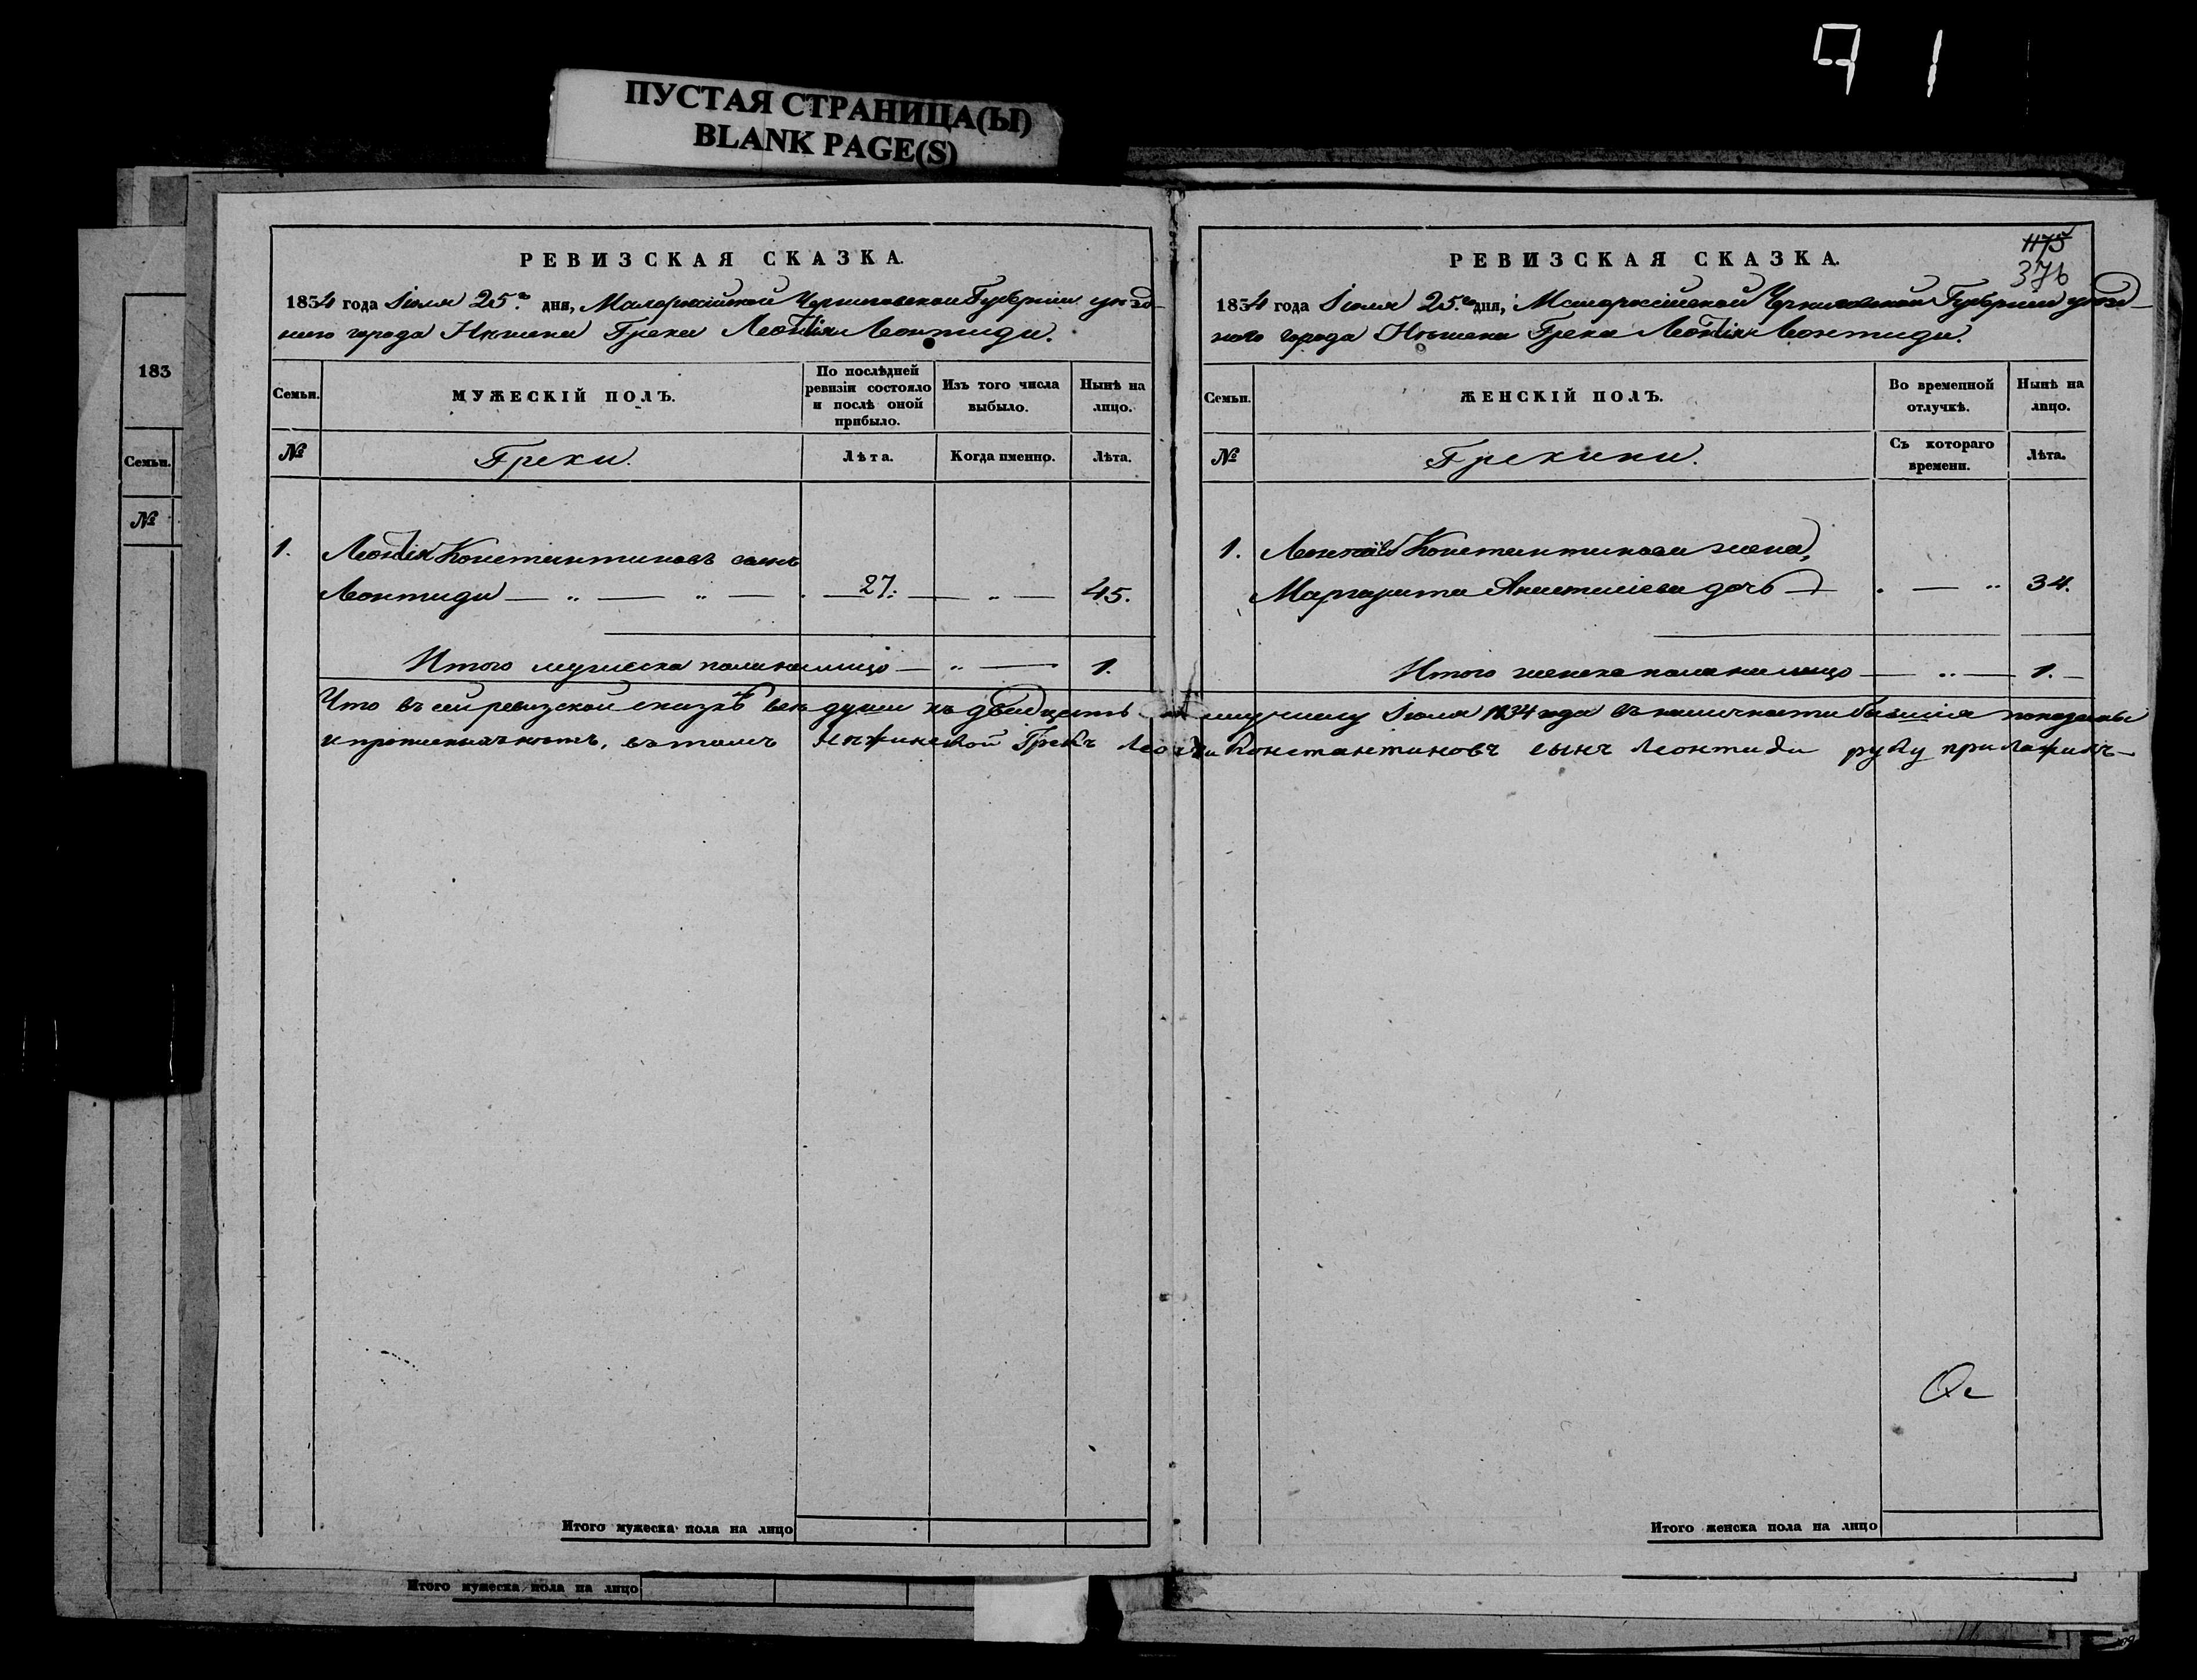 91
ПУСТАЯ СТРАНИЦА(Ы)
BLANK PAGE(S)
183
Семьи.
№
РЕВИЗСКАЯ СКАЗКА.
1834 года Іюля 25го дня, Малороссійской Черниговской Губерніи уѣзд-
наго города Нѣжина Грека Леонтія Леонтиди.
Семьи.
МУЖЕСКІЙ ПОЛЪ.
По послѣдней ревизіи состояло и послѣ оной прибыло.
Изъ того числа выбыло.
Нынѣ на лицо.
№
Греки.
Лѣта.
Когда именно.
Лѣта.
1. Леонтій Константиновъ сынъ
Леонтиди — „ — „ — 27. — „ — 45.
Итого мужеска пола на лицо — „ — 1.
Итого мужеска пола на лицо
Итого мужеска пола на лицо
1175
376
РЕВИЗСКАЯ СКАЗКА.
1834 года Іюля 25.го дня, Малороссійской Черниговской Губерніи уѣзд-
наго города Нѣжина Грека Леонтія Леонтиди.
Семьи.
ЖЕНСКІЙ ПОЛЪ.
Во временной отлучкѣ.
Нынѣ на лицо.
№
Грекини.
Съ котораго времени.
Лѣта.
1. Леонтія Константинова жена,
Маргарита Анастасіева дочь — „ — „ 34.
Итого женска пола на лицо — „ — 1. —
Что въ сей ревизской сказкѣ всѣ души къ двадцать пятому числу Іюля 1834 года въ наличности бывшія показаны
въ томъ Нѣжинской Грекъ Леонтій Константиновъ сынъ Леонтиди руку приложилъ —
Итого женска пола на лицо